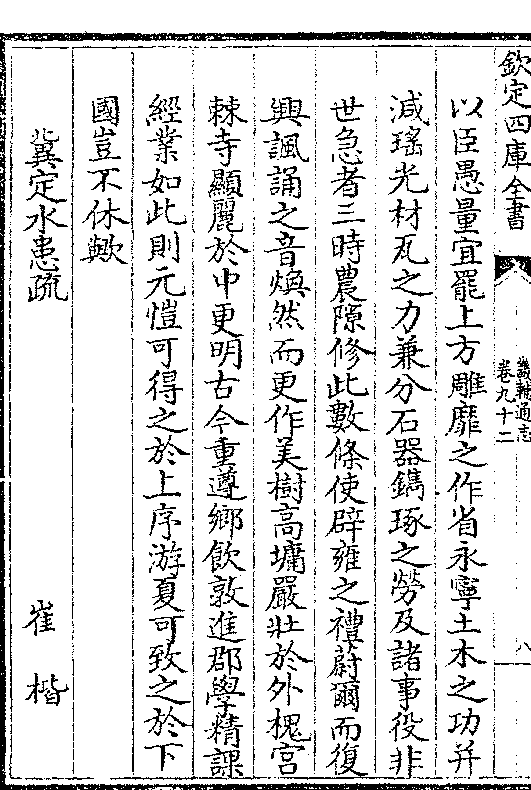 欽定四庫全書
畿輔通志
卷九十二
八
以臣愚量宜罷上方雕靡之作省永寧土木之功并
減瑤光材瓦之力兼分石器鐫琢之勞及諸事役非
世急者三時農隙修此數條使辟雍之禮蔚爾而復
興諷誦之音煥然而更作美樹高墉嚴壯於外槐宮
棘寺顯麗於中更明古今重遵鄉飲敦進郡學精課
經業如此則元愷可得之於上序游夏可致之於下
國豈不休歟
冀定水患疏 崔楷